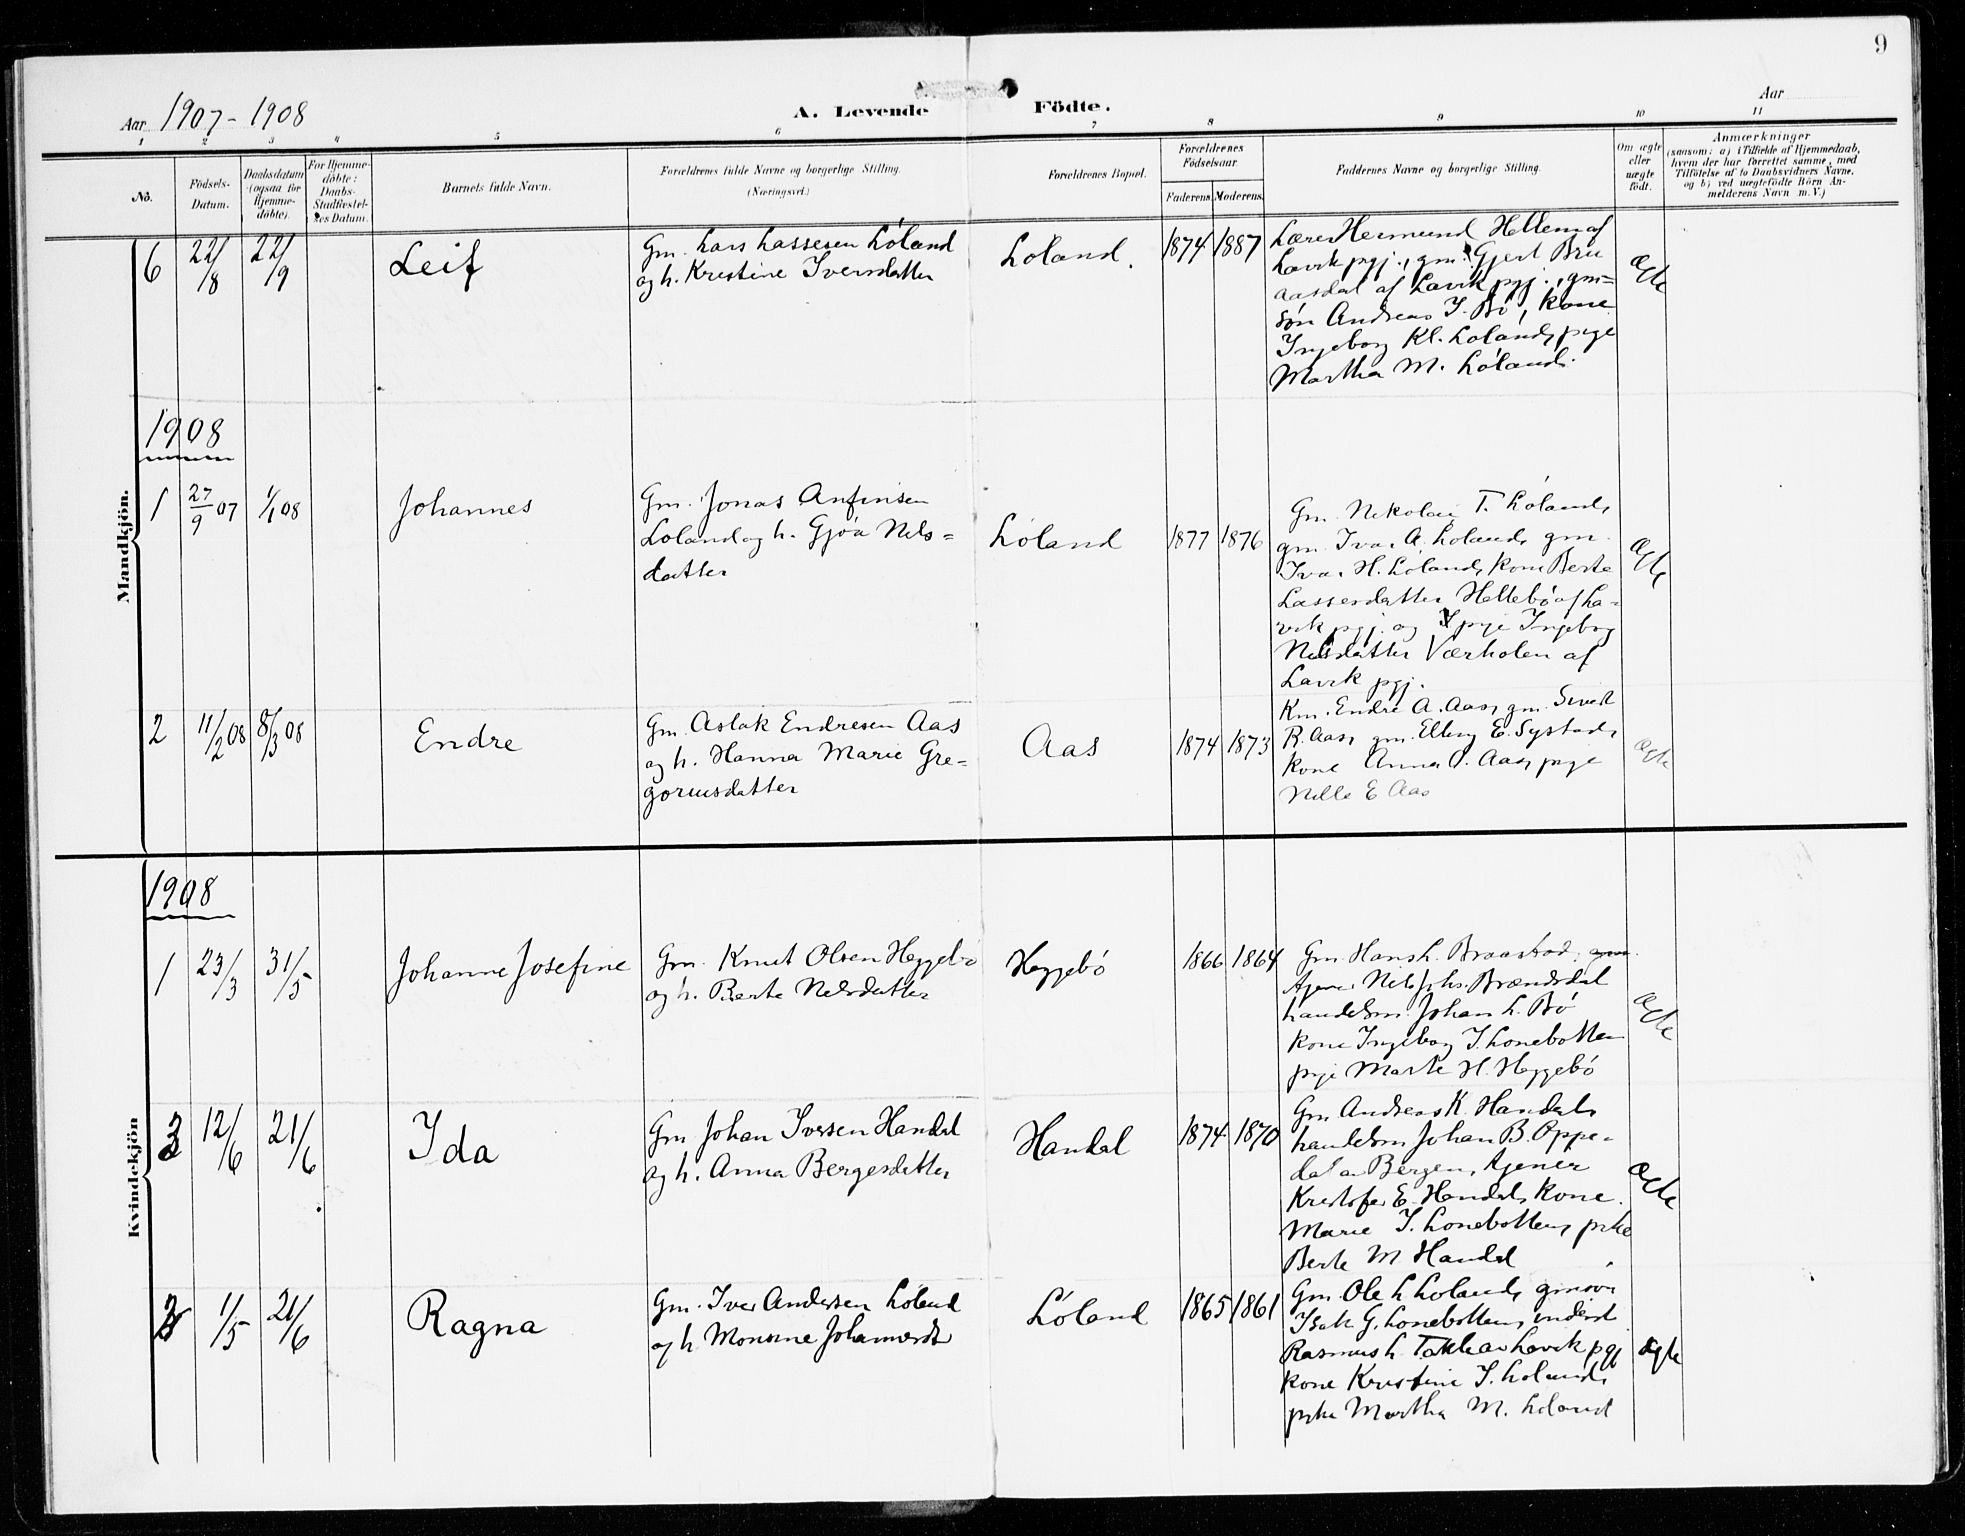 9
Aar 1907-1908
A. Levende Födte.
Aar
1 2 3 4 5 6 7 8 9 10 11
No.
Födsels-Datum.
Daabsdatum (ogsaa for Hjemmedöbte).
For Hjemmedöbte: Daabs-Stadfæstelses Datum.
Barnets fulde Navn.
Forældrenes fulde Navne og borgerlige Stilling. (Næringsvei.)
Forældrenes Bopæl.
Forældrenes Födselsaar.
Faderens. Moderens.
Faddernes Navne og borgerlige Stilling.
Om ægte eller uægte födt.
Anmærkninger
(saasom: a) i Tilfælde af Hjemmedaab,
hvem der har forrettet samme, med
Tilföielse af to Daabsvidners Navne,
og b) ved uægtefödte Börn An-
melderens Navn m. V.)
Mandkjön.
6 22/8 22/9 Leif
Gm. Lars Lassesen Loland
og h. Kristine Iversdatter
Loland.
1874 1887
Lærer Hermund Hellem af
Lavik pgj., gm. Gjert Bru
aasdal af Lavik pgj., gm=
søn Andreas I. Bø, kone
Ingeborg Kl. Loland, pige
Martha M. Loland.
ægte
1908
1 27/9 07 1/1 08 Johannes
Gm. Jonas Anfinsen
Loland og h. Gjøa Nils=
datter
Loland
1877 1876
Gm. Nikolai T. Loland,
gm. Ivar A. Loland, gm.
Ivar H. Loland, kone Berte
Lassesdatter Hellebø af La-
vik pgj. og pige Ingeborg
Nilsdatter Værholen af
Lavik pgj.
ægte
2 11/2 08 8/3 08 Endre
Gm. Aslak Endresen Aas
og h. Hanna Marie Gre=
goriusdatter
Aas
1874 1873
Km. Endre A. Aas, gm. Sivert
R. Aas, gm. Elling E. Systad,
kone Anna Aas, pige
Nille E Aas
ægte
Kvindekjön
1908
1 23/3 31/5 Johanne Josefine
Gm. Knut Olsen Heggebø
og h. Berte Nilsdatter
Heggebø
1866 1864
Gm. Hans L. Braastad, gm.
Nils Johs. Brændsdal
handelsm. Johan L. Bø
kone Ingeborg I. Lonebotten
pige Marte H. Heggebø
ægte
2 12/6 21/6 Ida
Gm Johan Iversen Handal
og h. Anna Bergesdatter
Handal
1874 1870
Gm. Andreas K. Handal,
handelsm Johan B. Oppe-
dal av Bergen,
Kristofer E. Handal, kone
Marie I. Lonebotten, pike
Berte M Handal
ægte
3 1/5 21/6 Ragna
Gm. Iver Andersen Loland
og h. Monsine Johannesdt
Loland
1865 1861
Gm. Ole L Loland, gmsøn
Isak G. Lonebotten,
Rasmus L Takle av Lavik pgj
kone Kristine I. Loland,
pike Martha M. Loland
ægte